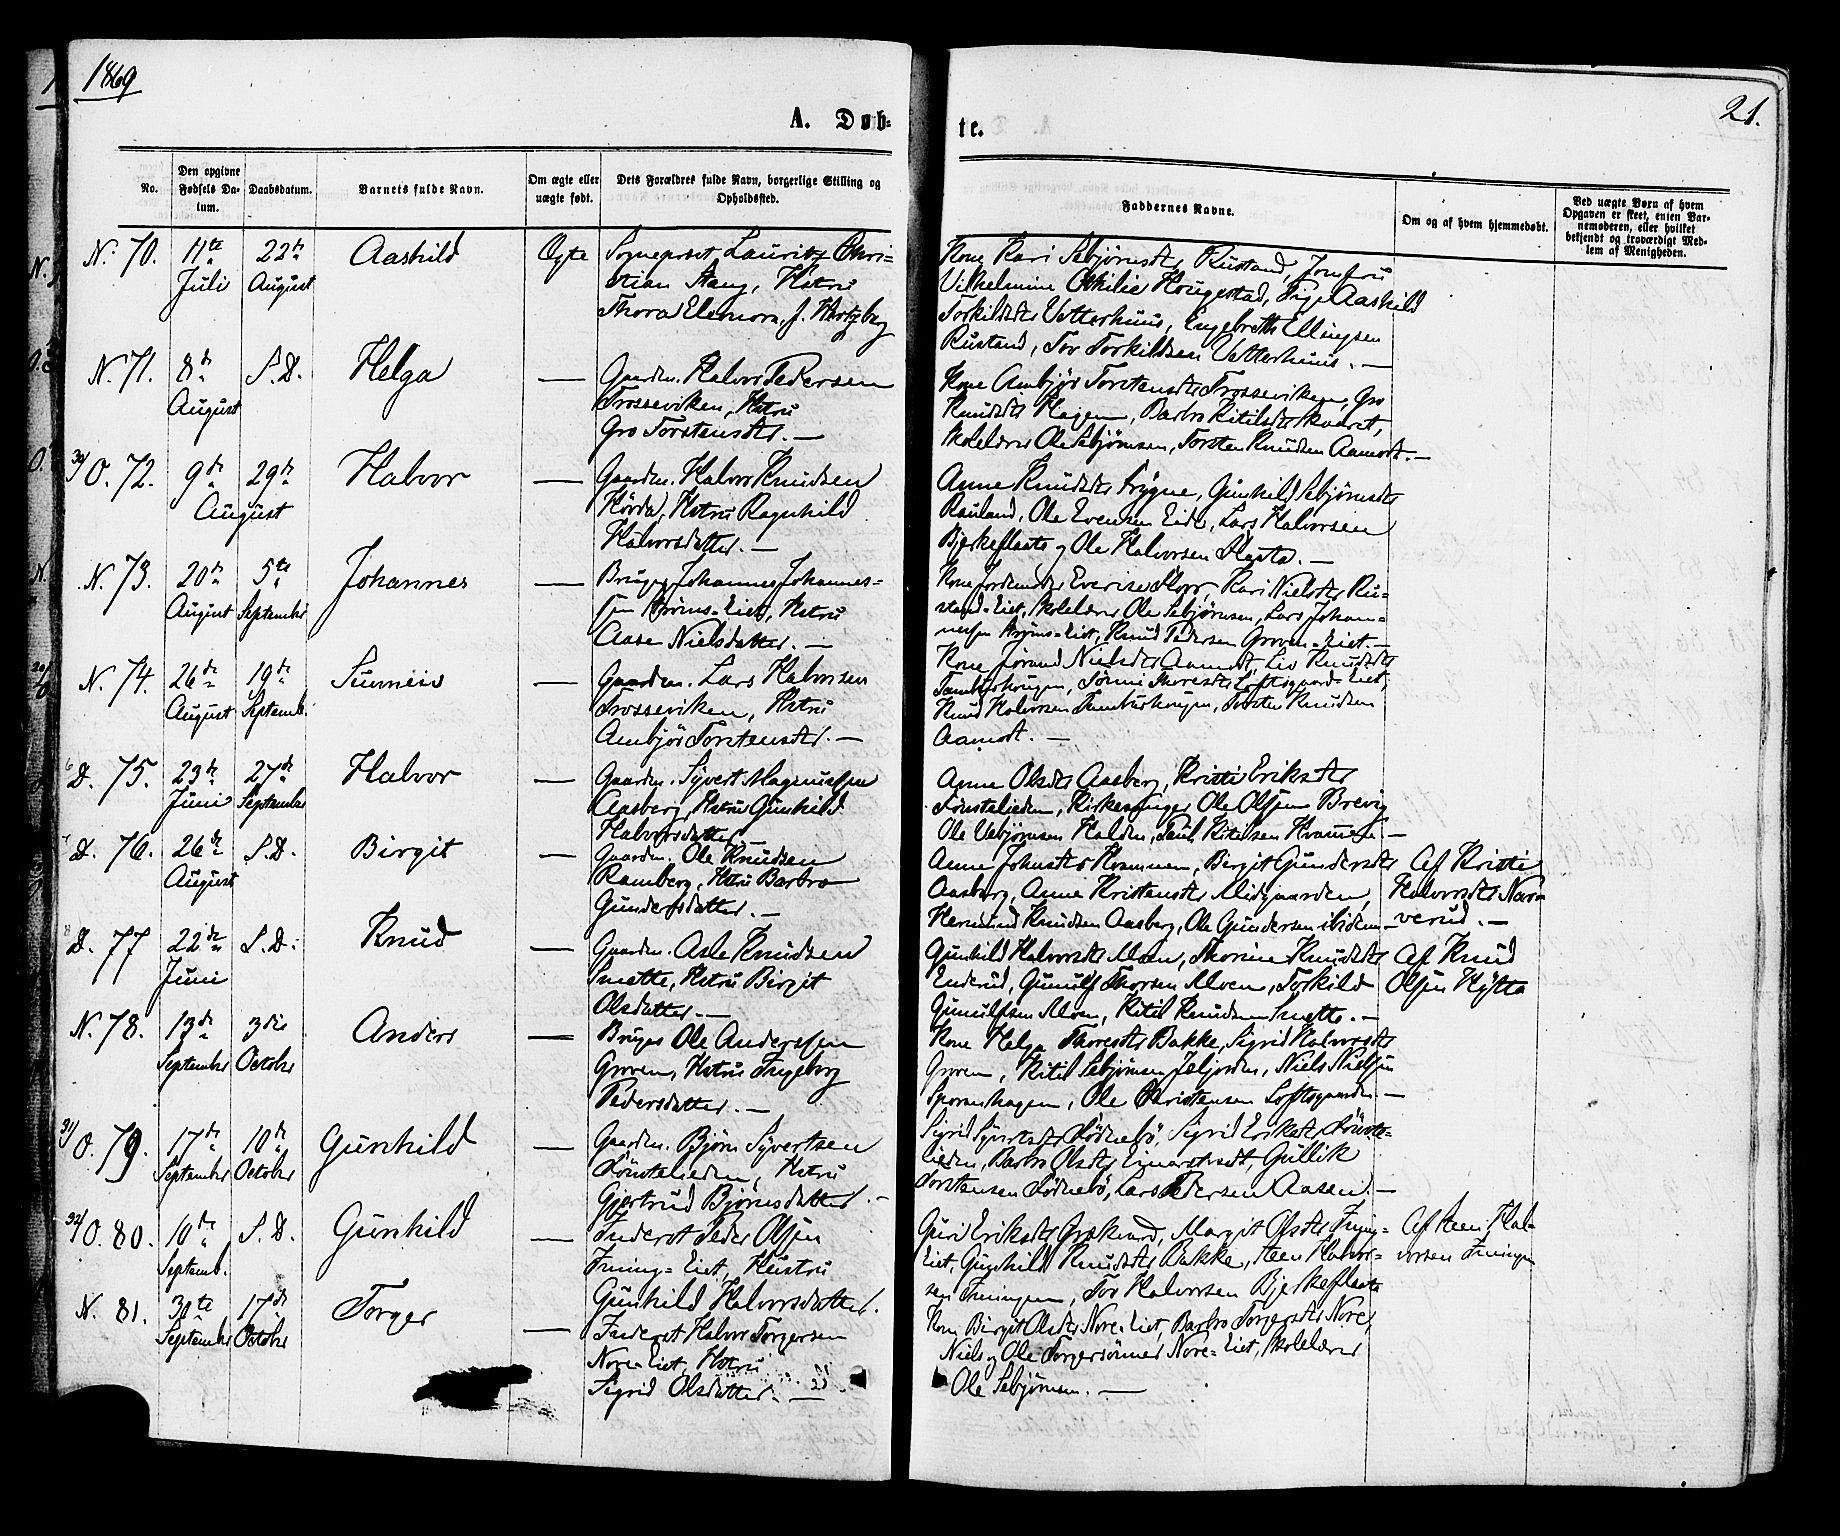 1869
21.
A. Døb-
te.
No.
Den opgivne
Fødsels Da-
tum.
Daabsdatum.
Barnets fulde Navn.
Om ægte eller
uægte født.
Dets Forældres fulde Navn, borgerlige Stilling og
Opholdssted.
Faddernes Navne.
Om og af hvem hjemmedøbt.
Ved uægte Børn af hvem
Opgaven er skeet, enten Bar-
nemoderen, eller hvilket
bekjendt og troværdigt Med-
lem af Menigheden.
N. 70.
11te
Juli
22de
August
Aashild
Ægte
Sogneprest Lauritz Chri-
stian Stang, Hstru
Thora Eleonora, f.
Kone Kari Sebjørnsdtr Rustand, Jomfru
Vilhelmine Hougestad, Pige Aashild
Torkildsdtr Vetterhuus, Engebreth Ellingsen
Rustand, Tov Torkildsen Vetterhuus. —
N. 71.
8de
August
S.D.
Helga
—
Gaardm. Halvor Pedersen
Trosseviken, Hstru
Gro Torstensdtr. —
Kone Ambjør Torstensdtr Trosseviken, Gro
Knudsdtr Hagen, Barbro Kitilsdtr
Skolelærer Ole Sebjørnsen, Torsten Knudsen Aamodt. —
30/ O. 72.
9de
August
29de
Halvor
—
Gaardm. Halvor Knudsen
Hørda, Hstru Ragnhild
Halvorsdatter. —
Anne Knudsdtr Frygne, Gunhild Sebjørnsdtr
Rauland, Ole Evensen Eide, Lars Halvorsen
Bjerkeflaate og Ole Halvorsen Flaata. —
N. 73.
20de
August
5te
September
Johannes
—
Bruger Johannes Johannes-
sen Eiet, Hstru
Aase Nielsdatter. —
Kone Kari Nielsdtr Ru-
stand-Eiet, Skolelærer Ole Sebjørnsen, Lars Johan-
nesen Eiet, Knud Pedersen Groven-Eiet. —
N. 74.
26de
August
19de
Septemb.
Sünneiv
—
Gaardm. Lars Halvorsen
Trosseviken, Hstru
Ambjør Torstensdtr. —
Kone Jørand Nielsdtr Aamodt, Liv Knudsdtr
Tamburhougen, Sønni Thoresdtr Loftsgaards Eiet,
Knud Halvorsen Tamburhougen, Torsten Knudsen
Aamodt. —
D. 75.
23de
Juni
27de
September
Halvor
—
Gaardm. Syvert Magnussen
Aasberg, Hstru Gunhild
Halvorsdatter. —
Anne Olsdtr Aasberg, Kristi Eriksdtr
Lønstelieden, Kirkesanger Ole Olsen Brevig
Ole Sebjørnsen Halden, Paul Kitilsen Hvammen. —
D. 76.
26de
August
S.D.
Birgit
—
Gaardm. Ole Knudsen
Ramberg, Hstru Barbro
Gundersdatter. —
Anne Johnsdtr Hvammen, Birgit Gundersdtr
Aasberg, Anne Kristensdtr Midgaarden,
Hermund Knudsen Aasberg, Ole Gundersen ibidem —
Af Kristi
Halvorsdtr Nar-
verud. —
D. 77
22de
Juni
S.D.
Knud
—
Gaardm. Asle Knudsen
Smette, Hstru Birgit
Olsdatter. —
Gunhild Halvorsdtr Moen, Thorine Knudsdtr
Enderud, Gunulf Thorsen Moen, Torkild
Gunulfsen Moen, Kitil Knudsen Smette. —
Af Knud
Olsen Hytta
N. 78.
13de
September
3die
October
Anders
—
Bruger Ole Anderssen
Groven, Hstru Ingeborg
Pedersdatter. —
Kone Helga Thoresdtr Bakke, Sigrid Halvorsdtr
Groven, Kitil Sebjørnsen Jeljorden, Niels Nielsen
Sporanhagen, Ole Christensen Loftsgaarden. —
31/ O. 79.
17de
September
10de
October
Gunhild
—
Gaardm. Bjørn Syvertsen
Lönstelieden, Hstru
Gjertrud Björnsdatter. —
Sigrid Syvertsdtr Lødnebø, Sigrid Eriksdtr Lönste-
lieden, Barbro Olsdtr Einarstvedt, Gullik
Torstensen Lødnebø, Lars Pedersen Aasen. —
32/ O. 80.
10de
Septemb.
S.D.
Gunhild
—
Inderst Peder Olsen
Fruning-Eiet, Hustru
Gunhild Halvorsdatter.
Guri Eriksdtr Margit Olsdtr Fruning-
Eiet, Gunhild Knudsdtr Bakke, Steen Halvor-
sen Fruningen, Tov Halvorsen Bjerkeflaate
Af Steen Hal-
vorsen Fruningen
N. 81.
30te
September
17de
October
Torger
—
Inderst Halvor Torgersen
Nore-Eiet, Hstru
Sigrid Olsdatter. —
Kone Birgit Olsdtr Nore-Eiet, Barbro Torgersdtr Nore,
Niels og Ole Torgersönner Nore-Eiet, Skolelærer
Ole Sebjørnsen. —